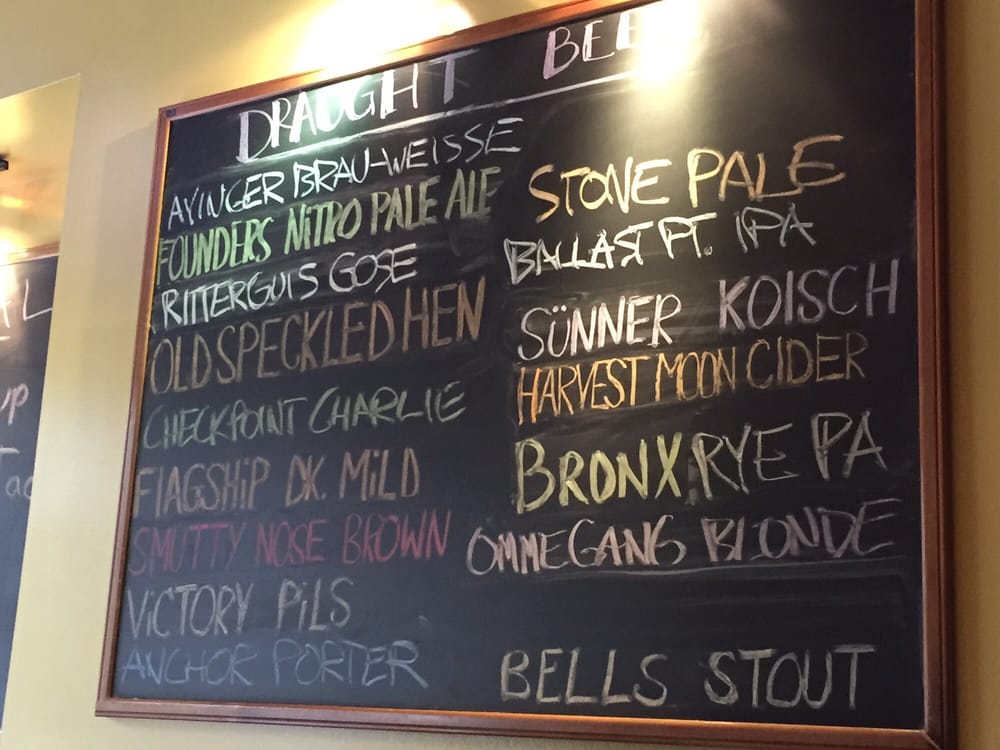 DRAUGHT BEE
AYINGER BRAU-WEISSE
FOUNDERS NiTRO PALE ALE
RITTERGUIS GOSE
OLD SPECKLED HEN
CHECKPOINT CHARLIE
FlAGSHiP DK. MiLD
SMUTTY NOSE BROWN
ViCTORY PiLS
ANCHOR PORTER
STONE PALE
BALLAST PT. IPA
SÜNNER KOISCH
HARVEST MOON CIDER
BRONX RYE PA
OMMEGANG BLONDE
BELLS STOUT